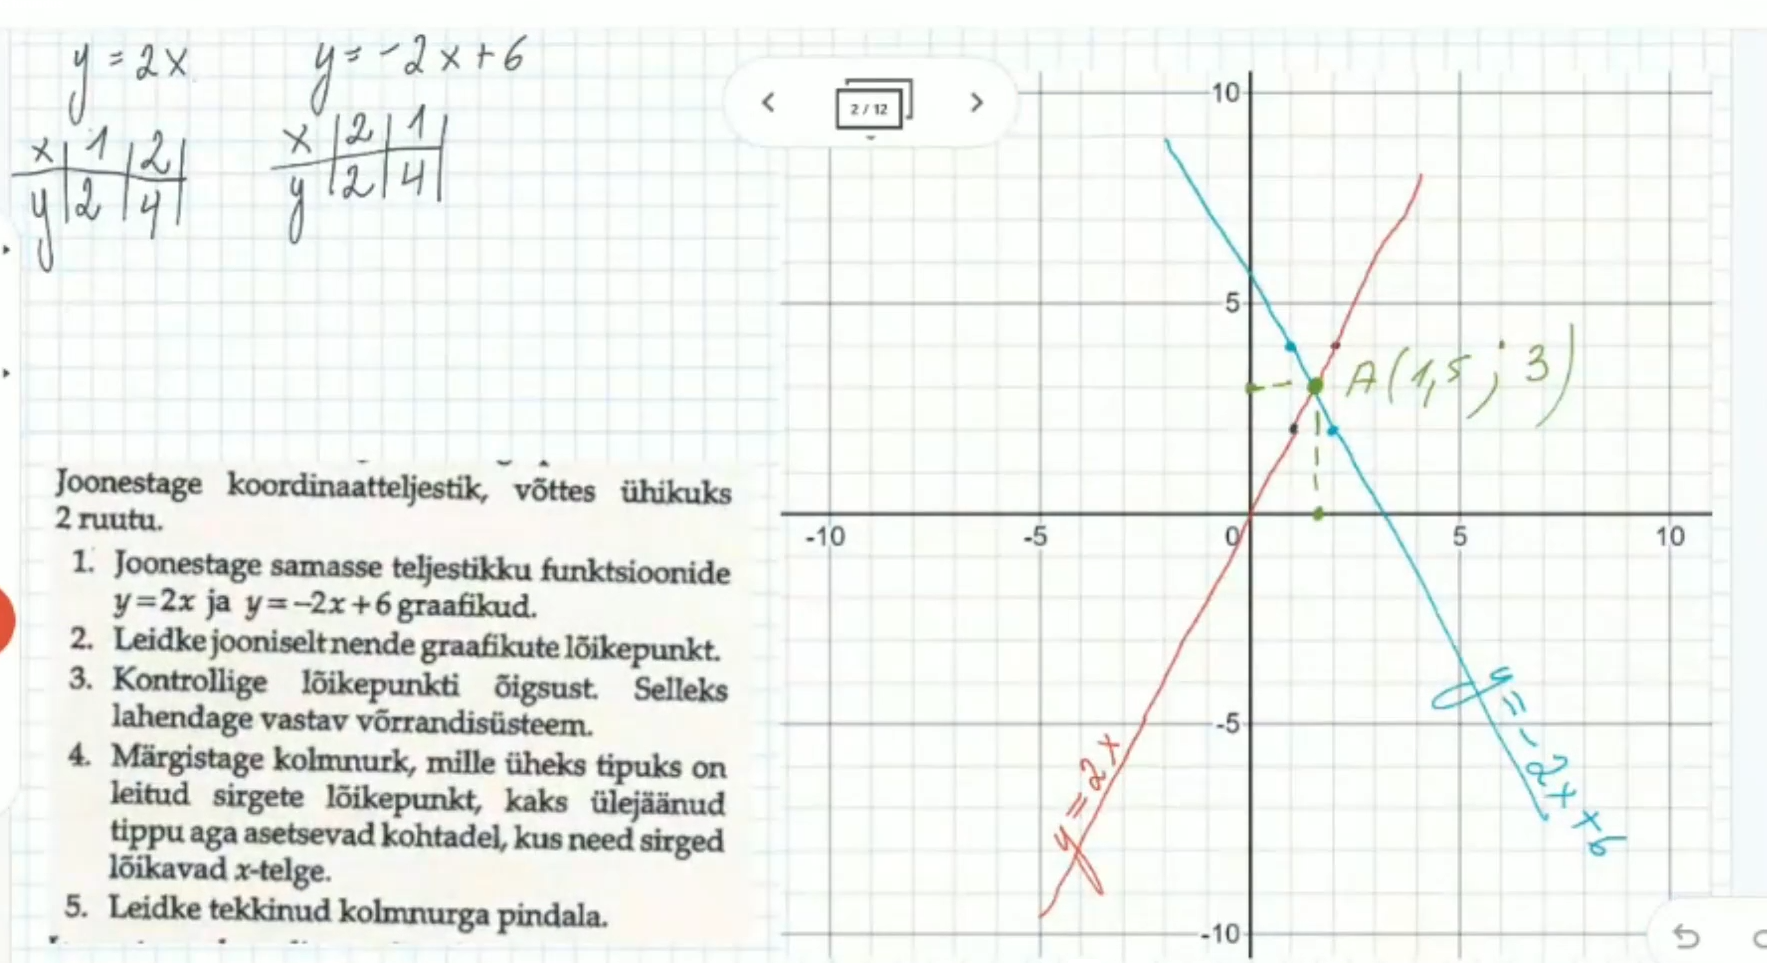 y = 2x
y = -2x + 6
x | 1 | 2 |
y | 2 | 4 |
x | 2 | 1 |
y | 2 | 4 |
Joonestage koordinaatteljestik, võttes ühikuks
2 ruutu.
1. Joonestage samasse teljestikku funktsioonide
y=2x ja y=–2x+6 graafikud.
2. Leidke jooniselt nende graafikute lõikepunkt.
3. Kontrollige lõikepunkti õigsust. Selleks
lahendage vastav võrrandisüsteem.
4. Märgistage kolmnurk, mille üheks tipuks on
leitud sirgete lõikepunkt, kaks ülejäänud
tippu aga asetsevad kohtadel, kus need sirged
lõikavad x-telge.
5. Leidke tekkinud kolmnurga pindala.
2 / 12
10
5
A(1,5 ; 3)
-10
-5
0
5
10
-5
y = 2x
y = -2x + 6
-10